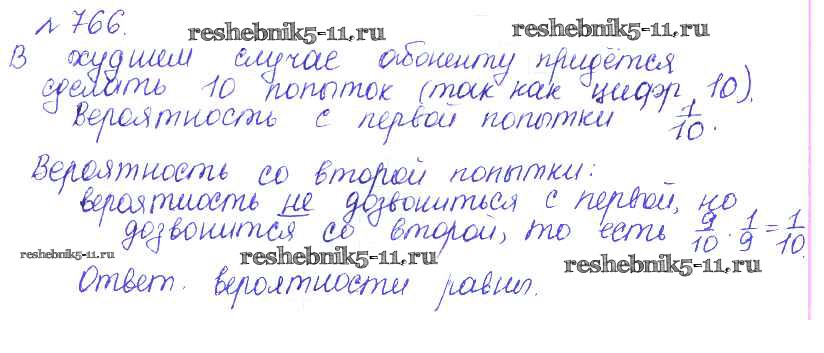 № 766.
reshebnik5-11.ru reshebnik5-11.ru
В худшем случае абоненту придётся
сделать 10 попыток (так как цифр 10).
Вероятность с первой попытки 1/10.
Вероятность со второй попытки:
вероятность не дозвониться с первой, но
дозвонится со второй, то есть 9/10 · 1/9 = 1/10.
reshebnik5-11.ru reshebnik5-11.ru reshebnik5-11.ru
Ответ. вероятности равны.